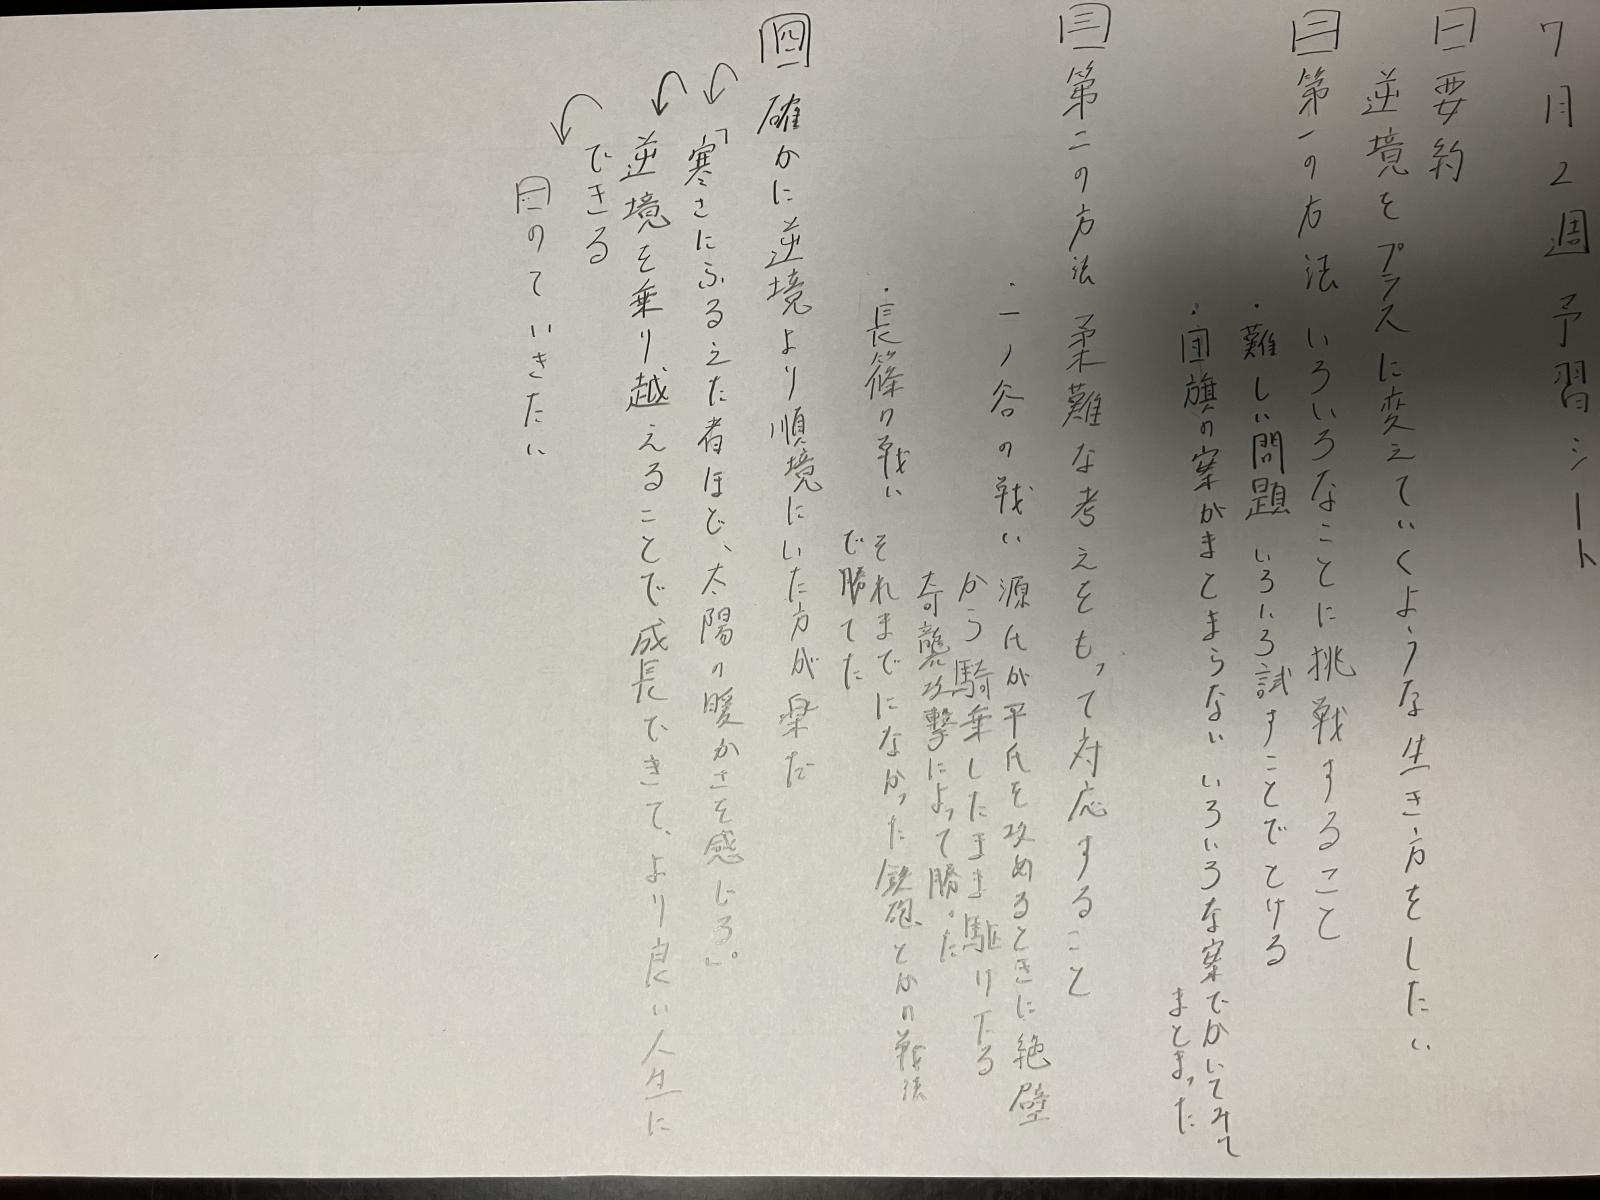 7月2週 予習シート
一 要約
逆境をプラスに変えていくような生き方をしたい
二 第一の方法 いろいろなことに挑戦すること
・難しい問題 いろいろ試すことでとける
・国旗の案がまとまらない いろいろな案でかいてみて
まとまった
三 第二の方法 柔難な考えをもって対応すること
・一ノ谷の戦い 源氏が平氏を攻めるときに絶壁
から騎乗したまま駆け下る
奇襲攻撃によって勝った
・長篠の戦い それまでになかった鉄砲とかの戦法
で勝てた
四 確かに逆境より順境にいた方が楽だ
「寒さにふるえた者ほど、太陽の暖かさを感じる。」
逆境を乗り越えることで成長できて、より良い人生に
できる
日のていきたい